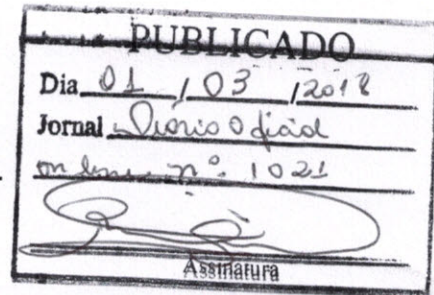 PUBLICADO
Dia 01 / 03 / 2018
Jornal Diário Oficial
on line nº 1021
Assinatura